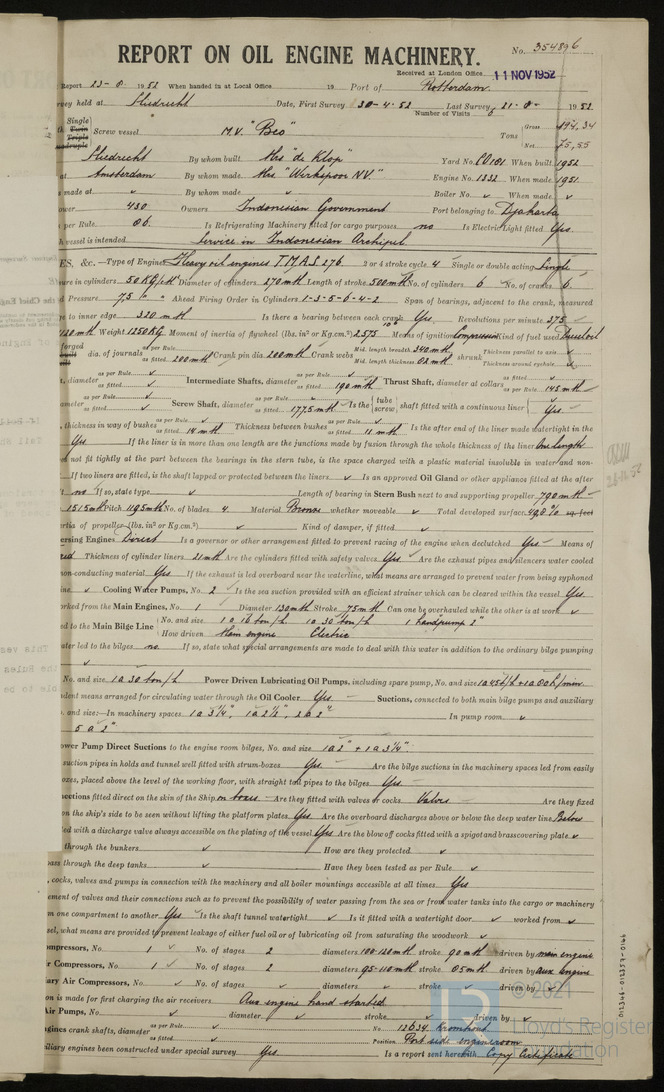 REPORT ON OIL ENGINE MACHINERY.
No. 354896
Received at London Office 11 NOV 1952
Report 23-8. 1952 When handed in at Local Office 19 Port of Rotterdam.
vey held at Sliedrecht Date, First Survey 30-4-52 Last Survey 21-8- 1952
Number of Visits
Single
Twin
Triple
Quadruple
Screw vessel M.V. "Beo" Tons Gross 194,34
Net 75,55
Sliedrecht By whom built Mrs "de Klop" Yard No. CO181 When built 1952
at Amsterdam By whom made Mrs "Werkspoor N.V." Engine No. 1332 When made 1951
made at ✓ By whom made ✓ Boiler No. ✓ When made ✓
ower 430 Owners Indonesian Government Port belonging to Djakarta
per Rule 86. Is Refrigerating Machinery fitted for cargo purposes no Is Electric Light fitted Yes.
h vessel is intended Service in Indonesian Archipel
ES, &c.—Type of Engines Heavy oil engines T.M.A.S. 276 2 or 4 stroke cycle 4 Single or double acting Single
ure in cylinders 50 KG/cm² Diameter of cylinders 270 m/m Length of stroke 500 m/m No. of cylinders 6 No. of cranks 6.
d Pressure 7,5 " " Ahead Firing Order in Cylinders 1-3-5-6-4-2 Span of bearings, adjacent to the crank, measured
inner edge 320 m/m Is there a bearing between each crank Yes Revolutions per minute 375
Weight 1250KG. Moment of inertia of flywheel (lbs. in² or Kg.cm.²) 2575 10⁶ Means of ignition Compression Kind of fuel used Dieseloil
dia. of journals as per Rule as fitted 200 m/m Crank pin dia. 200 m/m Crank webs Mid. length breadth 340 m/m Mid. length thickness 82 m/m shrunk Thickness parallel to axis ✓ Thickness around eyehole ✓
t, diameter as per Rule ✓ as fitted ✓ Intermediate Shafts, diameter as per Rule as fitted 190 m/m Thrust Shaft, diameter at collars as per Rule 145 m/m
ameter as per Rule ✓ as fitted ✓ Screw Shaft, diameter as per Rule as fitted 177,5 m/m Is the { tube screw } shaft fitted with a continuous liner { Yes
, thickness in way of bushes as per Rule ✓ as fitted 14 m/m Thickness between bushes as per Rule ✓ as fitted 11 m/m Is the after end of the liner made watertight in the
Yes If the liner is in more than one length are the junctions made by fusion through the whole thickness of the liner One length
not fit tightly at the part between the bearings in the stern tube, is the space charged with a plastic material insoluble in water and non-
If two liners are fitted, is the shaft lapped or protected between the liners ✓ Is an approved Oil Gland or other appliance fitted at the after
t no If so, state type ✓ Length of bearing in Stern Bush next to and supporting propeller 790 m/m
1515 m/m Pitch 1195 m/m No. of blades 4 Material Bronze whether moveable ✓ Total developed surface 49,8 % sq. feet
ertia of propeller (lbs. in² or Kg.cm.²) ✓ Kind of damper, if fitted ✓
ersing Engines Direct Is a governor or other arrangement fitted to prevent racing of the engine when declutched Yes Means of
Thickness of cylinder liners 21 m/m Are the cylinders fitted with safety valves Yes Are the exhaust pipes and silencers water cooled
non-conducting material Yes If the exhaust is led overboard near the waterline, what means are arranged to prevent water from being syphoned
ine ✓ Cooling Water Pumps, No. 2 Is the sea suction provided with an efficient strainer which can be cleared within the vessel Yes.
orked from the Main Engines, No. 1 Diameter 130 m/m Stroke 75 m/m Can one be overhauled while the other is at work ✓
ed to the Main Bilge Line { No. and size 1 a 16 ton/h 1a 30 ton/h 1 handpump 2"
How driven Main engine Electric
ater led to the bilges no. If so, state what special arrangements are made to deal with this water in addition to the ordinary bilge pumping
✓
No. and size 1 a 30 ton/h Power Driven Lubricating Oil Pumps, including spare pump, No. and size
dent means arranged for circulating water through the Oil Cooler Yes Suctions, connected to both main bilge pumps and auxiliary
. and size:—In machinery spaces 1 a 3¼", 1 a 2½", 2 a 2" In pump room ✓
5 a 2"
ower Pump Direct Suctions to the engine room bilges, No. and size 1 a 2" + 1 a 3¼"
suction pipes in holds and tunnel well fitted with strum-boxes Yes Are the bilge suctions in the machinery spaces led from easily
oxes, placed above the level of the working floor, with straight tail pipes to the bilges Yes
ections fitted direct on the skin of the Ship on boxes Are they fitted with valves or cocks Valves Are they fixed
on the ship's side to be seen without lifting the platform plates Yes Are the overboard discharges above or below the deep water line Below
ed with a discharge valve always accessible on the plating of the vessel Yes Are the blow off cocks fitted with a spigot and brass covering plate ✓
through the bunkers ✓ How are they protected ✓
pass through the deep tanks ✓ Have they been tested as per Rule ✓
, cocks, valves and pumps in connection with the machinery and all boiler mountings accessible at all times Yes
ement of valves and their connections such as to prevent the possibility of water passing from the sea or from water tanks into the cargo or machinery
m one compartment to another Yes Is the shaft tunnel watertight ✓ Is it fitted with a watertight door ✓ worked from ✓
sel, what means are provided to prevent leakage of either fuel oil or of lubricating oil from saturating the woodwork ✓
ompressors, No. 1 ✓ No. of stages 2 diameters 100-120 m/m stroke 90 m/m driven by main engine
r Compressors, No. 1 ✓ No. of stages 2 diameters 95-110 m/m stroke 85 m/m driven by aux engine
iary Air Compressors, No. ✓ No. of stages ✓ diameters ✓ stroke ✓ driven by ✓
on is made for first charging the air receivers Aux engine hand started
Air Pumps, No. ✓ diameter ✓ stroke ✓ driven by ✓
ngines crank shafts, diameter as per Rule ✓ as fitted ✓ No. 12634 Kromhout Position Port side engineroom
iliary engines been constructed under special survey Yes Is a report sent herewith Copy Certificate
© 2021
Lloyd's Register
Foundation